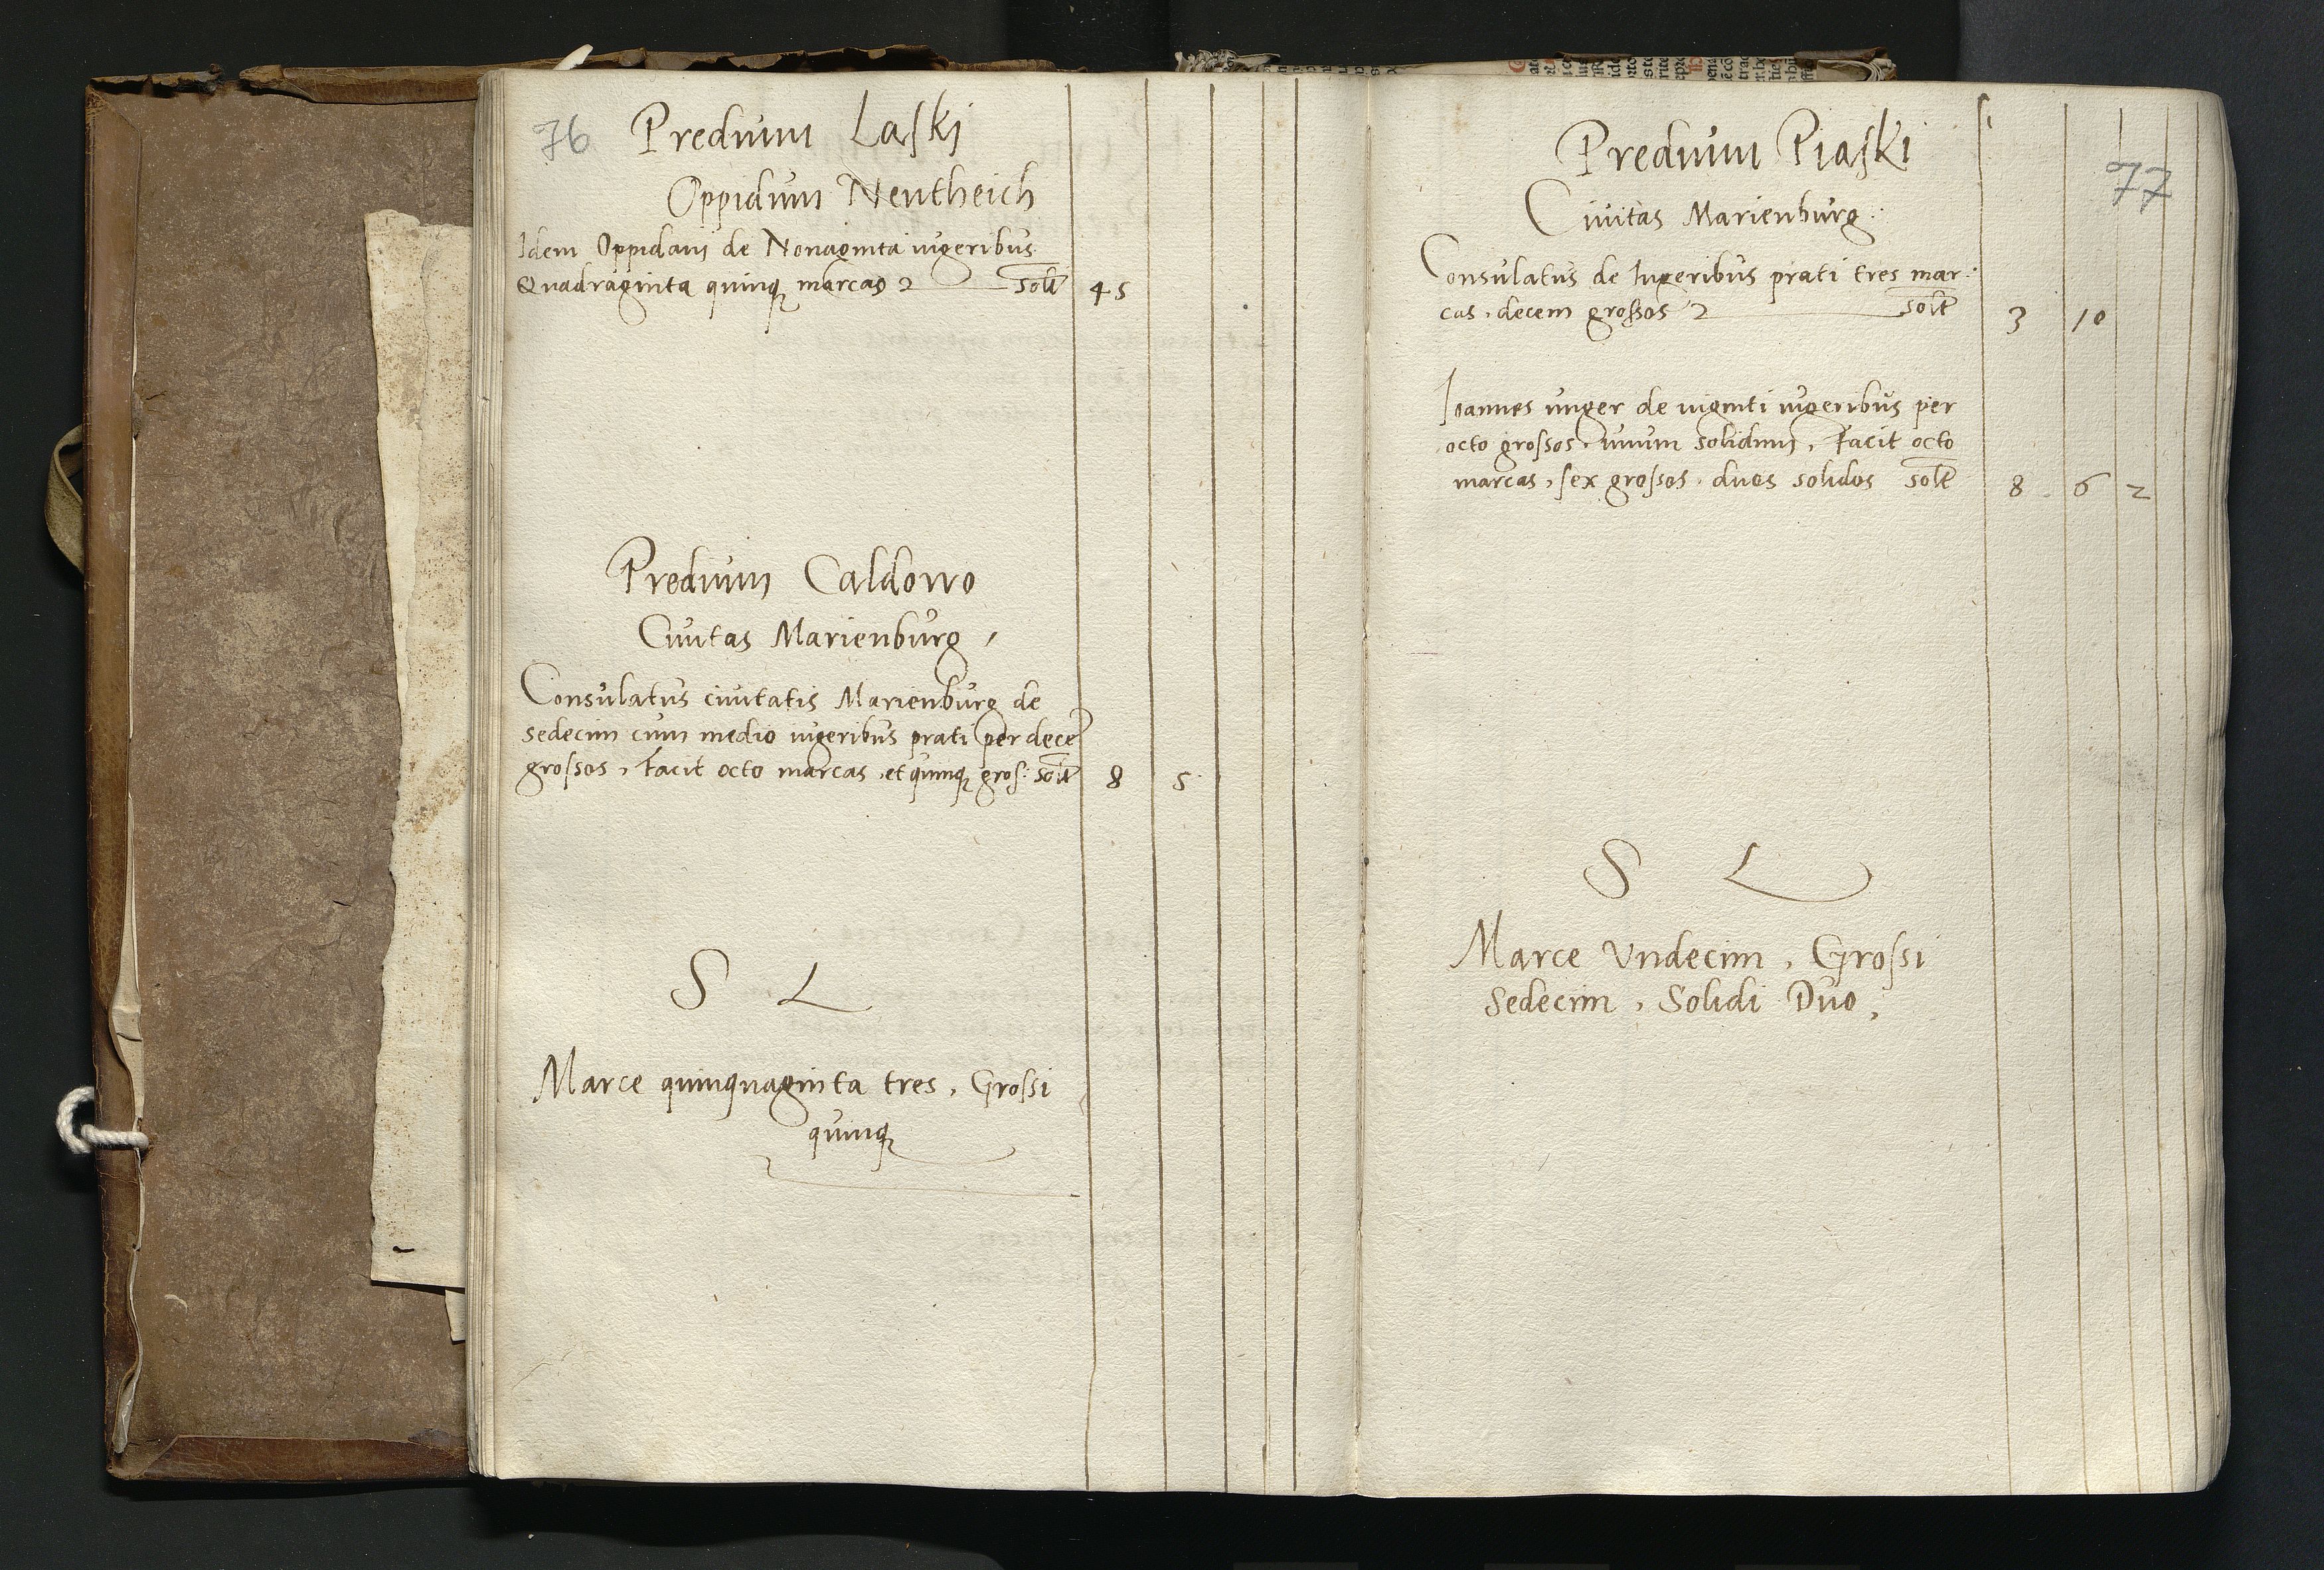 76 Predium Laski
Oppidum Neutheich
Idem Oppidani de Nonaginta iugeribus
Quadraginta quinq marcas solt 45
Predium Caldowo
Ciuitas Marienburg
Consulatus ciuitatis Marienburg de
sedecim cum medio iugeribus prati per dece
grossos, Facit octo marcas, et quinq gros: solt 8 5
S L
Marce quinquaginta tres, Grossi
quinq
Predium Piaski
77
Ciuitas Marienburg:
Consulatus de Iugeribus prati tres mar:
cas, decem grossos solt 3 10
Ioannes unger de uiginti iugeribus per
octo grossos, unum solidum, Facit octo
marcas, sex grossos, duos solidos solt 8 6 2
S L
Marce Vndecim, Grossi
Sedecim, Solidi Duo,